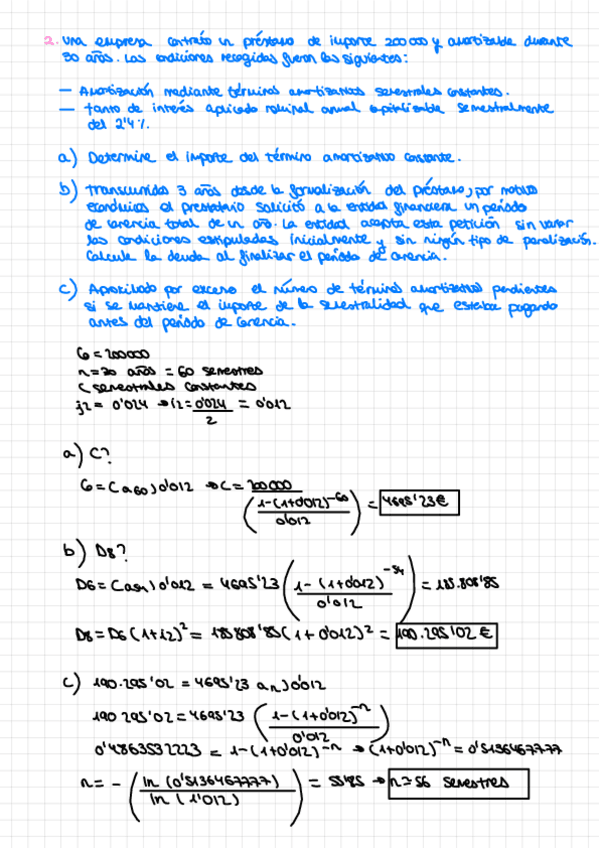 2. Una empresa contrató un préstamo de importe 200000 y amortizable durante
30 años. Las condiciones recogidas fueron las siguientes:
— Amortización mediante términos amortizativos semestrales constantes.
— Tanto de interés aplicado nominal anual capitalizable semestralmente
del 2'4%.
a) Determine el importe del término amortizativo constante.
b) Transcurridos 3 años desde la formalización del préstamo, por motivos
económicos el prestatario solicitó a la entidad financiera un periodo
de carencia total de un año. La entidad acepta esta petición sin variar
las condiciones estipuladas inicialmente y sin ningún tipo de penalización.
Calcule la deuda al finalizar el periodo de carencia.
c) Aproximado por exceso el número de términos amortizativos pendientes
si se mantiene el importe de la semestralidad que estaba pagando
antes del periodo de carencia.
C0 = 200000
n = 30 años = 60 semestres
C semestrales constantes
j2 = 0'024 → i2 = 0'024/2 = 0'012
a) C?
C0 = C a60⌉0'012 → C = 200000 / ((1-(1+0'012)^-60)/0'012) = 4695'23€
b) D8?
D6 = C a54⌉0'012 = 4695'23 ((1-(1+0'012)^-54)/0'012) = 185.808'85
D8 = D6 (1+i2)^2 = 185808'85 (1+0'012)^2 = 190.295'02 €
c) 190.295'02 = 4695'23 an⌉0'012
190295'02 = 4695'23 ((1-(1+0'012)^-n)/0'012)
0'4863532223 = 1-(1+0'012)^-n → (1+0'012)^-n = 0'5136467777
n = -(ln(0'5136467777)/ln(1'012)) = 55'85 → n = 56 semestres